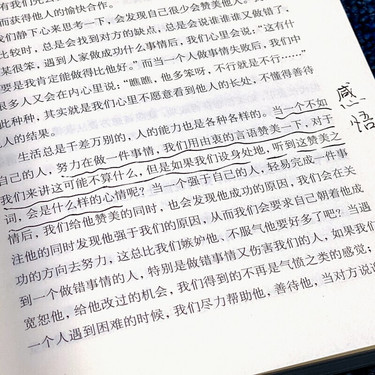 而获得他人的愉快合作。
我们静下心来思考一下，会发现自己很少会赞美他人。
比较时，总是会找到对方的缺点，总是会说谁谁谁又做错了，
某很笨，遇到人家做成功什么事情后，我们心里会说：“这有什
要是我肯定能做得比他好。”而当一个人做事情失败后，我们中
很多人又会在内心里说：“瞧瞧，他多笨呀，不行就是不行……”
此种种，其实就是我们心里不愿意看到他人的长处，不懂得善待
人的结果。
生活总是千差万别的，人的能力也是各种各样的。当一个不如
自己的人，努力在做一件事情，我们用由衷的言语赞美一下，对于
我们来讲这可能不算什么，但是如果我们设身处地，听到这赞美之
词，会是什么样的心情呢？当一个强于自己的人，轻易完成一件事
情后，我们给他赞美的同时，也会发现他成功的原因，我们会在关
注他的同时发现他强于我们的原因，从而我们会要求自己朝着他成
功的方向去努力，这总比我们嫉妒他、不服气他要好多了吧？当遇
到一个做错事情的人，特别是做错事情又伤害我们的人，如果我们
宽恕他，给他改过的机会，我们得到的不再是气愤之类的感觉；
一个人遇到困难的时候，我们尽力帮助他，善待他，当对方说
感悟